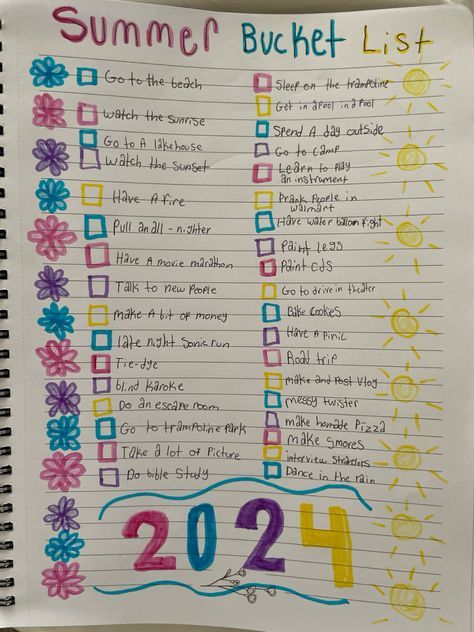 Summer Bucket List
Go to the beach
Watch the sunrise
Go to A lakehouse
Watch the sunset
Have A fire
Pull an all-nighter
Have A movie marathon
Talk to new People
Make A bit of money
Late night Sonic run
Tie-dye
blind Karoke
Do an escape room
Go to trampoline Park
Take a lot of Picture
Do bible Study
Sleep on the trampoline
Get in a Pool in a Pool
Spend A day outside
Go to camp
Learn to Play
an instrument
Prank People in
walmart
Have water balloon fight
Paint legs
Paint CDS
Go to drive in theater
Bake Cookies
Have A Pinic
Road trip
make and Post Vlog
messy twister
make homade Pizza
make Smores
interview Strangers
Dance in the rain
2024